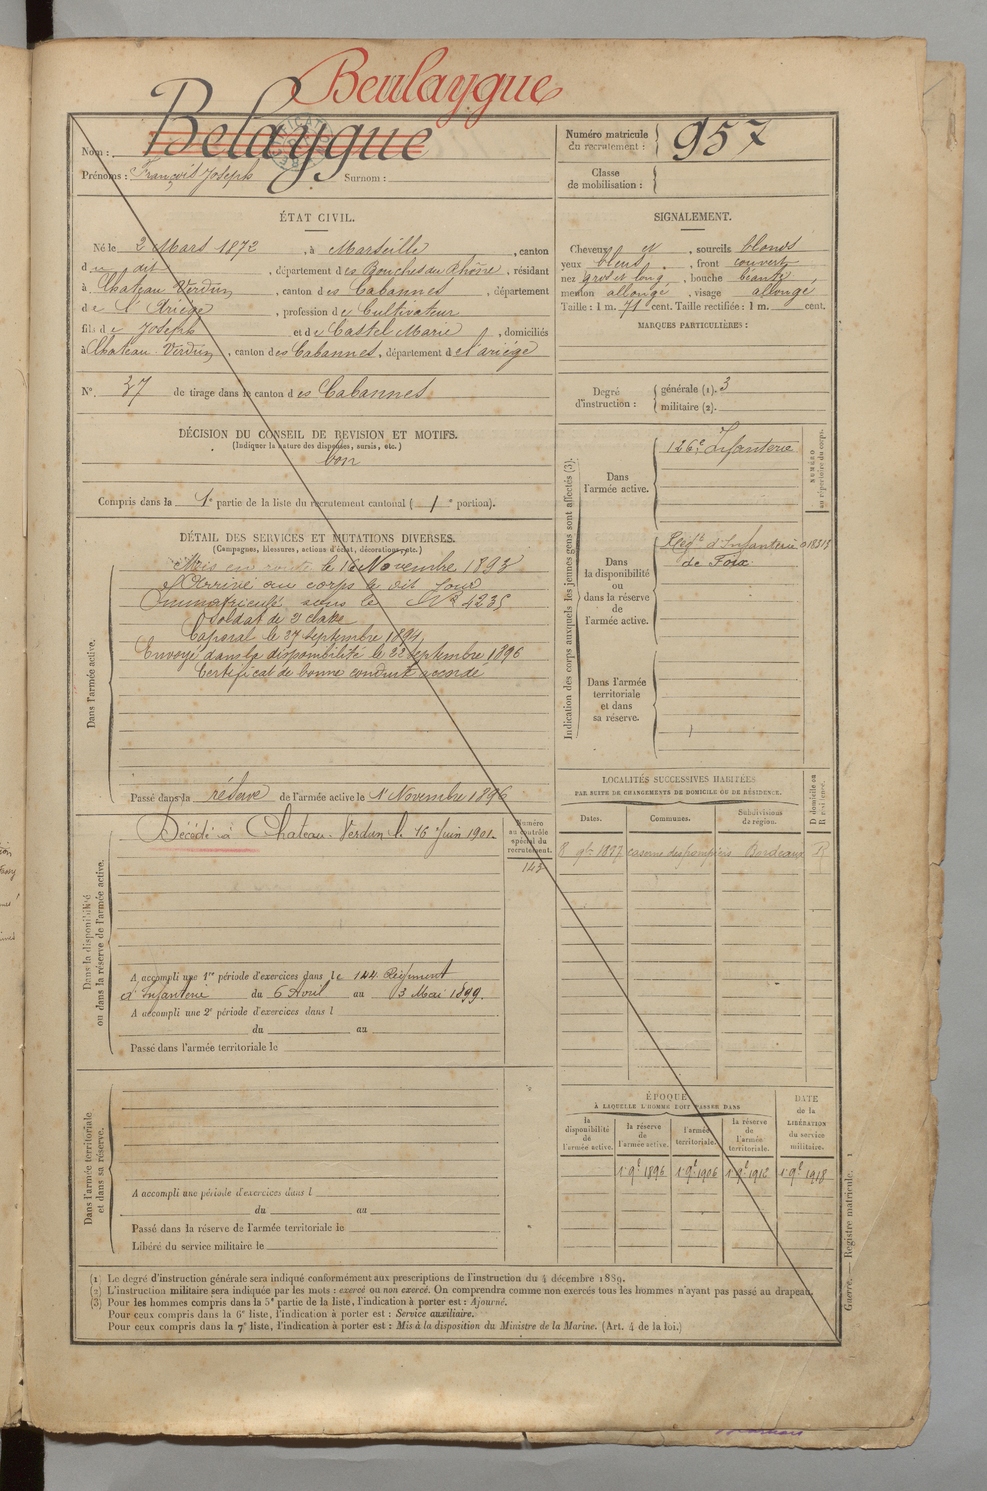 Beulaygue
Belaygue
Nom :
Prénoms : François Joseph Surnom :
Numéro matricule
du recrutement : 957
Classe
de mobilisation :
ÉTAT CIVIL.
Né le 2 Mars 1872, à Marseille, canton
du dit, département des Bouches du Rhône, résidant
à Chateau-Verdun, canton des Cabannes, département
de l'Ariège, profession de Cultivateur
fils de Joseph et de Castel Marie, domiciliés
à Chateau-Verdun, canton des Cabannes, département de l'ariège
N° 37 de tirage dans le canton des Cabannes
SIGNALEMENT.
Cheveux et, sourcils blonds
yeux bleus, front couvert
nez gros et long, bouche béante
menton allongé, visage allongé
Taille : 1 m. 71 cent. Taille rectifiée : 1 m. cent.
MARQUES PARTICULIÈRES :
Degré
d'instruction :
générale (1). 3
militaire (2).
DÉCISION DU CONSEIL DE REVISION ET MOTIFS.
(Indiquer la nature des dispenses, sursis, etc.)
bon
Compris dans la 1e partie de la liste du recrutement cantonal ( 1 e portion).
DÉTAIL DES SERVICES ET MUTATIONS DIVERSES.
(Campagnes, blessures, actions d'éclat, décorations, etc.)
Dans l'armée active.
Mis en route le 16 Novembre 1893
Arrivé au corps le dit jour
Immatriculé sous le N° 4235
Soldat de 2 classe
Caporal le 27 Septembre 1894
Envoyé dans la disponibilité le 22 Septembre 1896
Certificat de bonne conduite accordé
Passé dans la réserve de l'armée active le 1r Novembre 1896
Indication des corps auxquels les jeunes gens sont affectés (3).
Dans
l'armée active.
126e Infanterie
NUMÉRO
au répertoire du corps.
Dans
la disponibilité
ou
dans la réserve
de
l'armée active.
Régt d'Infanterie
de Foix
Dans l'armée
territoriale
et dans
sa réserve.
LOCALITÉS SUCCESSIVES HABITÉES
PAR SUITE DE CHANGEMENTS DE DOMICILE OU DE RÉSIDENCE.
Dates.
Communes.
Subdivisions
de région.
D domicile ou
R résidence.
8 9bre 1897 caserne des pompiers Bordeaux R
Dans la disponibilité
ou dans la réserve de l'armée active.
Décédé à Chateau-Verdun le 16 Juin 1901.
Numéro
au contrôle
spécial du
recrutement.
143
A accompli une 1re période d'exercices dans le 144 Régiment
d'Infanterie du 6 Avril au 3 Mai 1899.
A accompli une 2e période d'exercices dans l
du au
Passé dans l'armée territoriale le
Dans l'armée territoriale
et dans sa réserve.
A accompli une période d'exercices dans l
du au
Passé dans la réserve de l'armée territoriale le
Libéré du service militaire le
ÉPOQUE
À LAQUELLE L'HOMME DOIT PASSER DANS
la
disponibilité
de
l'armée active.
la réserve
de
l'armée active.
l'armée
territoriale.
la réserve
de
l'armée
territoriale.
DATE
de la
LIBÉRATION
du service
militaire.
1r 9e 1896 1r 9e 1906 1r 9e 1912 1r 9e 1918
(1) Le degré d'instruction générale sera indiqué conformément aux prescriptions de l'instruction du 4 décembre 1889.
(2) L'instruction militaire sera indiquée par les mots : exercé ou non exercé. On comprendra comme non exercés tous les hommes n'ayant pas passé au drapeau.
(3) Pour les hommes compris dans la 5e partie de la liste, l'indication à porter est : Ajourné.
Pour ceux compris dans la 6e liste, l'indication à porter est : Service auxiliaire.
Pour ceux compris dans la 7e liste, l'indication à porter est : Mis à la disposition du Ministre de la Marine. (Art. 4 de la loi.)
Guerre. — Registre matricule. 1